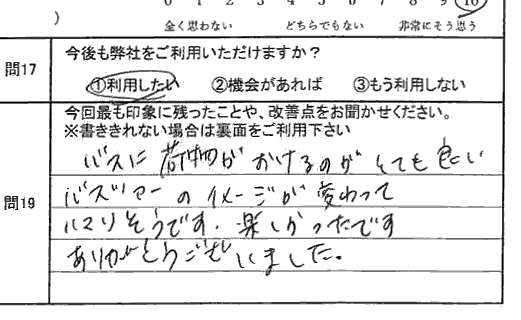 0 1 2 3 4 5 6 7 8 9 10
) 全く思わない どちらでもない 非常にそう思う
問17 今後も弊社をご利用いただけますか？
①利用したい ②機会があれば ③もう利用しない
今回最も印象に残ったことや、改善点をお聞かせください。
※書ききれない場合は裏面をご利用下さい
問19
バスに荷物がおけるのがとても良い
バスツアーのイメージが変わって
ハマりそうです。楽しかったです
ありがとうございました。